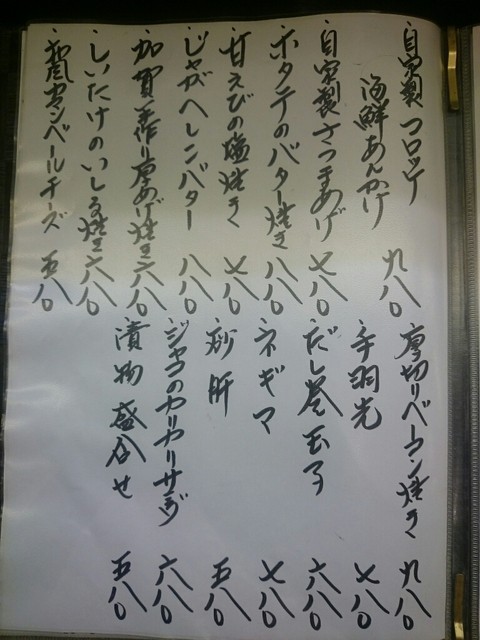 ・自家製コロッケ
海鮮あんかけ 九八〇
・自家製さつまあげ 七八〇
・ホタテのバター焼き 八八〇
・甘えびの塩焼き 七八〇
・じゃがへしこバター 八八〇
・加賀手作り厚あげ焼き 六八〇
・しいたけのいしる焼き 六八〇
・和風カマンベールチーズ 五八〇
・厚切りベーコン焼き 九八〇
・手羽先 七八〇
・だし巻玉子 六八〇
・ネギマ 七八〇
・砂肝 五八〇
・ジャコのカリカリサラダ 六八〇
・漬物盛合せ 五八〇